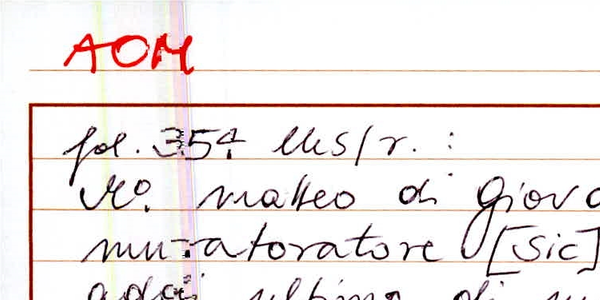 AOM
fol. 354 Ms/r. :
Mo. matteo di Giova
muratoratore [sic]
ultimo di